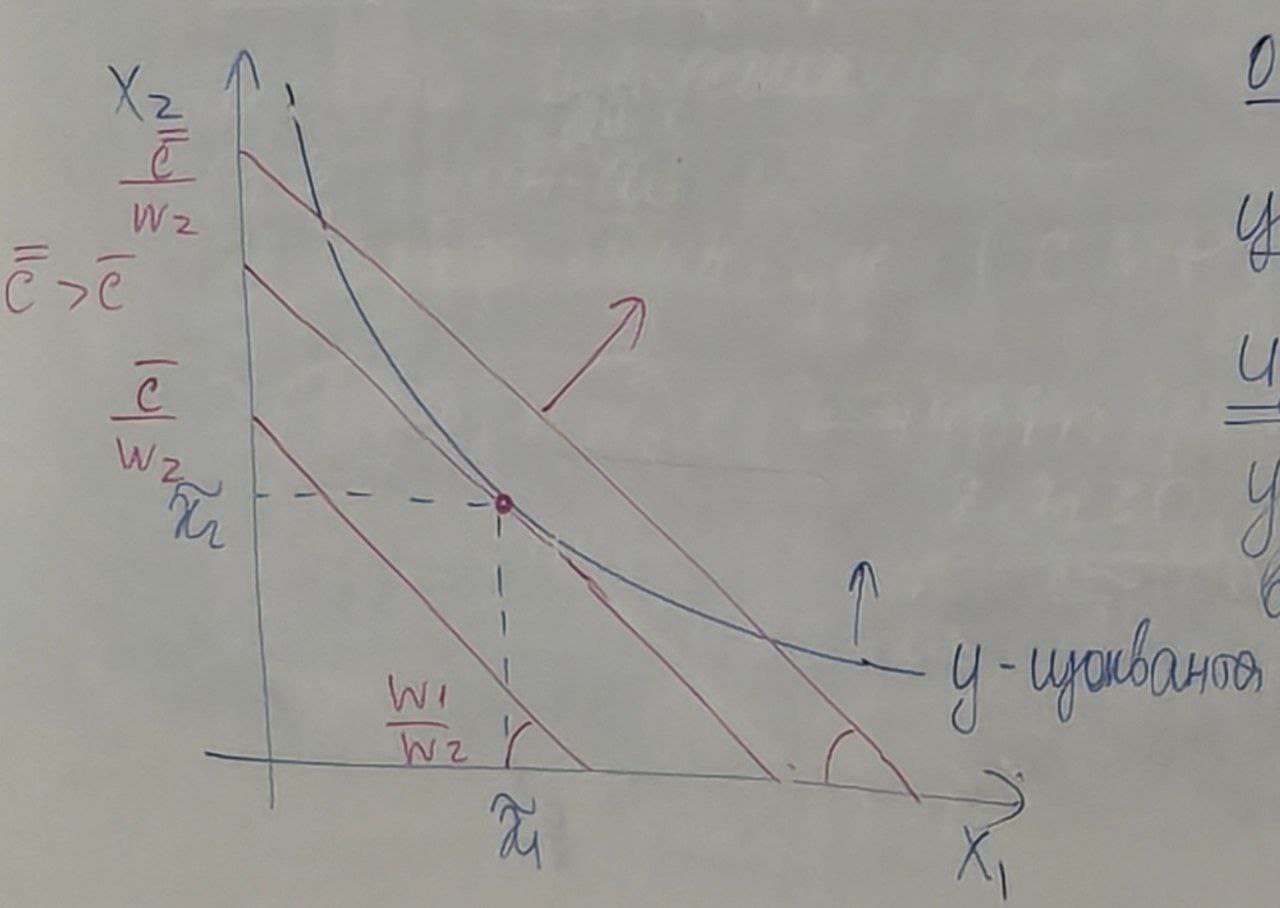 X₂
c̿/w₂
c̿ > c̄
c̄/w₂
x̃₂
w₁/w₂
x̃₁
X₁
y - изокванта
y
y